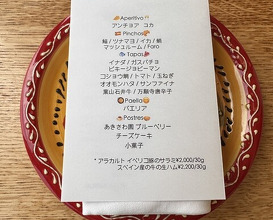 Aperitivo
アンチョア コカ
Pinchos
鮪 / ツナマヨ / イカ / 鯖
マッシュルーム / Foro
Tapas
イナダ / ガスパチョ
ピキージョピーマン
コショウ鯛 / トマト / 玉ねぎ
オオモンハタ / サンファイナ
葉山石井牛 / 万願寺唐辛子
Paella
パエリア
Postres
あきさわ園 ブルーベリー
チーズケーキ
小菓子
* アラカルト イベリコ豚のサラミ¥2,000/30g
スペイン産の牛の生ハム¥2,200/30g